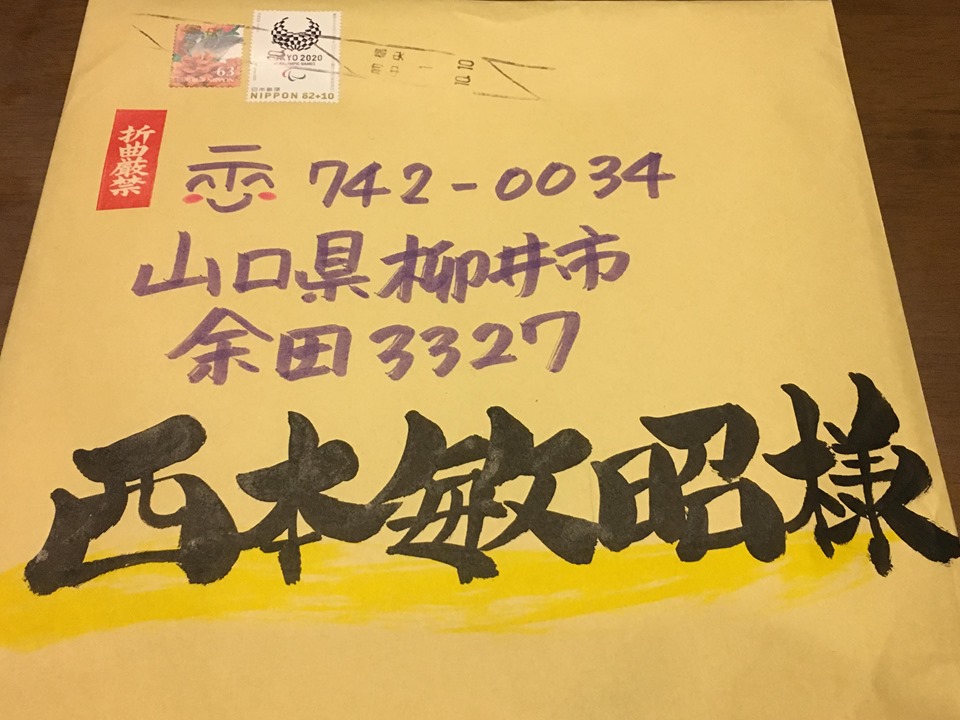 63
NIPPON
TOKYO 2020
NIPPON 82+10
10.10
折曲厳禁
〒742-0034
山口県柳井市
余田3327
西本敏昭様